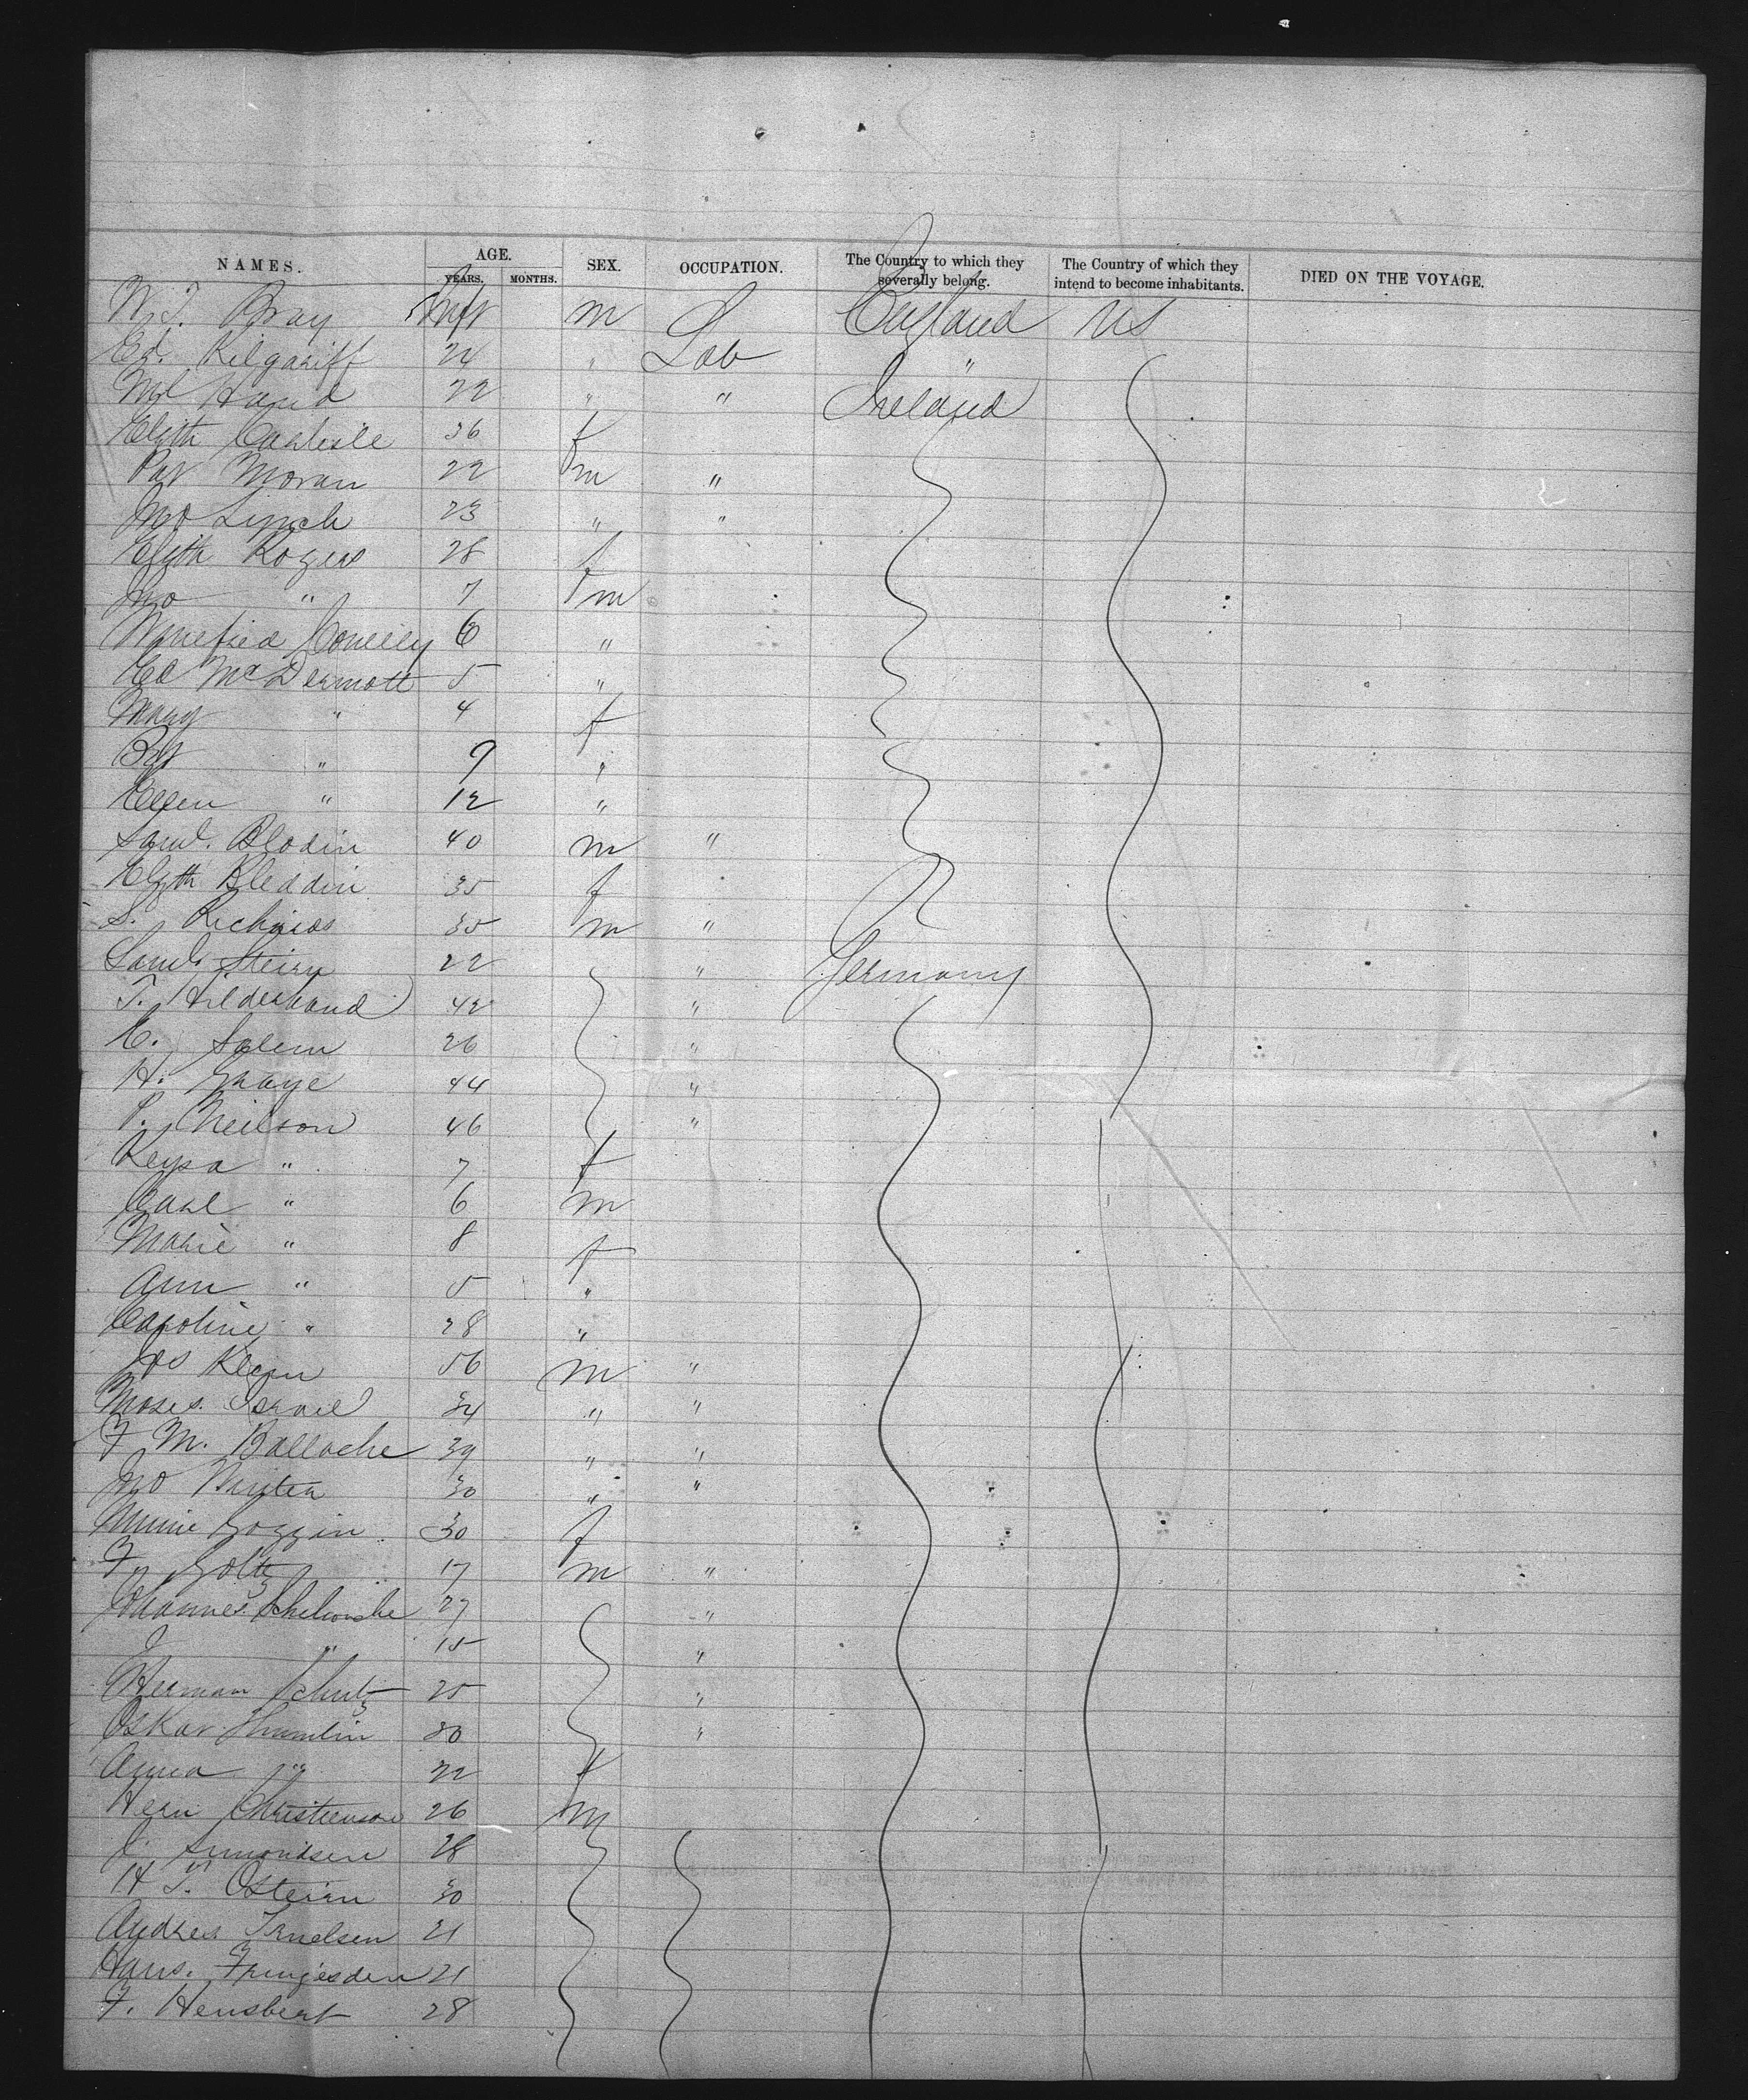 NAMES. AGE. YEARS. MONTHS. SEX. OCCUPATION. The Country to which they severally belong. The Country of which they intend to become inhabitants. DIED ON THE VOYAGE.
W. J. Bray Inft m England US
Ed. Kilgariff 24 " Lab "
Ml Hand 22 " " Ireland
Elizth Carlisle 36 f
Pat Moran 22 m "
Jno Linch 23 " "
Elizth Rogers 28 f
Jno " 7 m
Winefred Conelly 6 "
Ed McDermott 5 "
Mary " 4 f
Bgt " 9 "
Ellen " 12 "
Saml. Blodin 40 m "
Elizth Bleddin 35 f
S. Richards 35 m "
Saml. Steirn 22 " Germany
T. Hildebrand 42 "
C. Salem 26 "
H. 44 "
P. Neilson 46 "
Keysa " 7 f
Carl " 6 m
Marie " 8 f
Ann " 5 "
Caroline " 28 "
Jos Klein 56 m "
Moses Israel 34 " "
F M. Ballache 39 " "
Jno 30 " "
Minnie Goggin 30 f
F. Goltz 17 m "
Johannes 27 "
J " 15 "
Herman Schutz 25 "
Oskar 30 "
Anna " 22 f
Hein Christienson 26 m
Simondsen 28
H T. Osteirn 30
Andrea Truelsen 21
Hans. 21
F. Hensbert 28